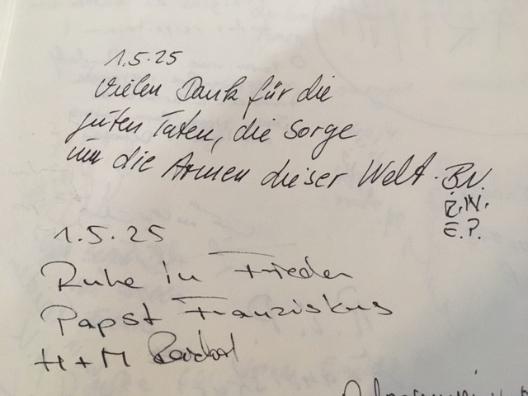 1.5.25
Vielen Dank für die
guten Taten, die Sorge
um die Armen dieser Welt. B.N.
E.P.
1.5.25
Ruhe in Frieden
Papst Franziskus
H+M